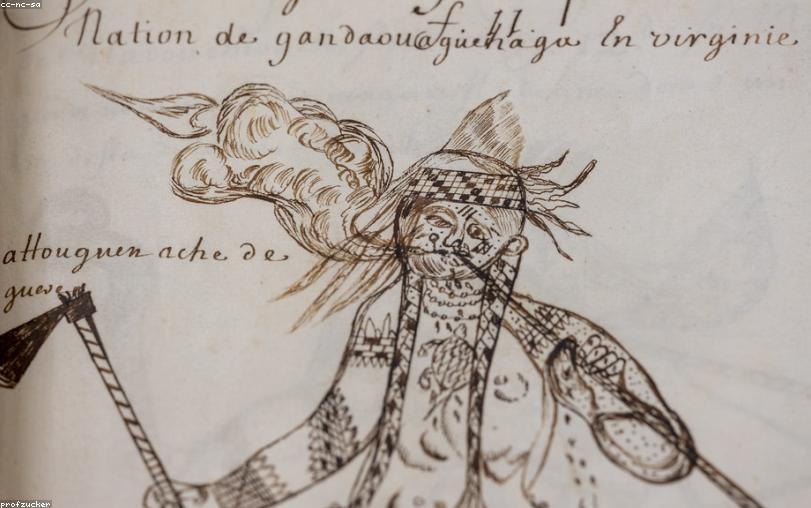 cc-nc-sa
Nation de gandaouaguehaga En virginie
attouguen ache de
guere
profzucker